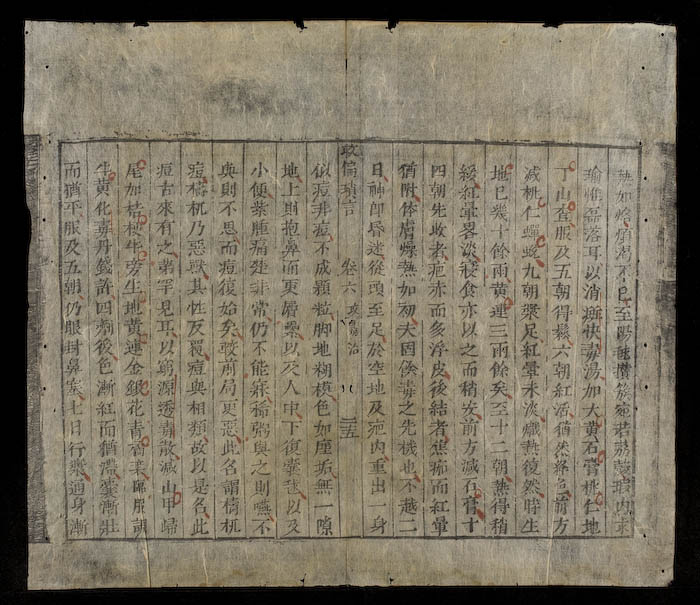 熱如燴煩渴不已至陽
瑜惟磊落耳以消斑快毒湯加大黃石膏桃仁地
丁山查服及五朝得鬆六朝紅活猶然落色前方
減桃仁蟬蛻九朝漿足紅暈未淡熾熱復然時生
地已幾十餘兩黃連三兩餘矣至十二朝熱得稍
緩紅暈畧淡寢食亦以之而稍安前方減石膏十
四朝先收者疤赤而多浮皮後結者焦痂而紅暈
猶附体膚燥熱如初大固餘毒之先機也不越二
日神即昏迷從頭至足於空地及疤内重出一身
救偏瑣言 卷六 治 三五
似痘非痘不成顆粒脚地糊模色如塵垢無一隙
地上則抱鼻而更層纍以及人中下復囊毬以及
小便紫腫痛楚非常仍不能寐稀粥與之則嚥不
與則不思而痘復始矣較前局更惡此名謂檮杌
痘檮杌乃惡獸其性反覆痘與相類故以是名此
痘古來有之第罕見耳以窮源透毒散減山甲歸
尾加桔梗牛旁生地黃連金銀花青黃服朝
牛黃化毒丹錢許四劑後色漸紅而猶滯囊漸壯
而猶平服及五朝仍服封鼻塞七日行漿通身漸